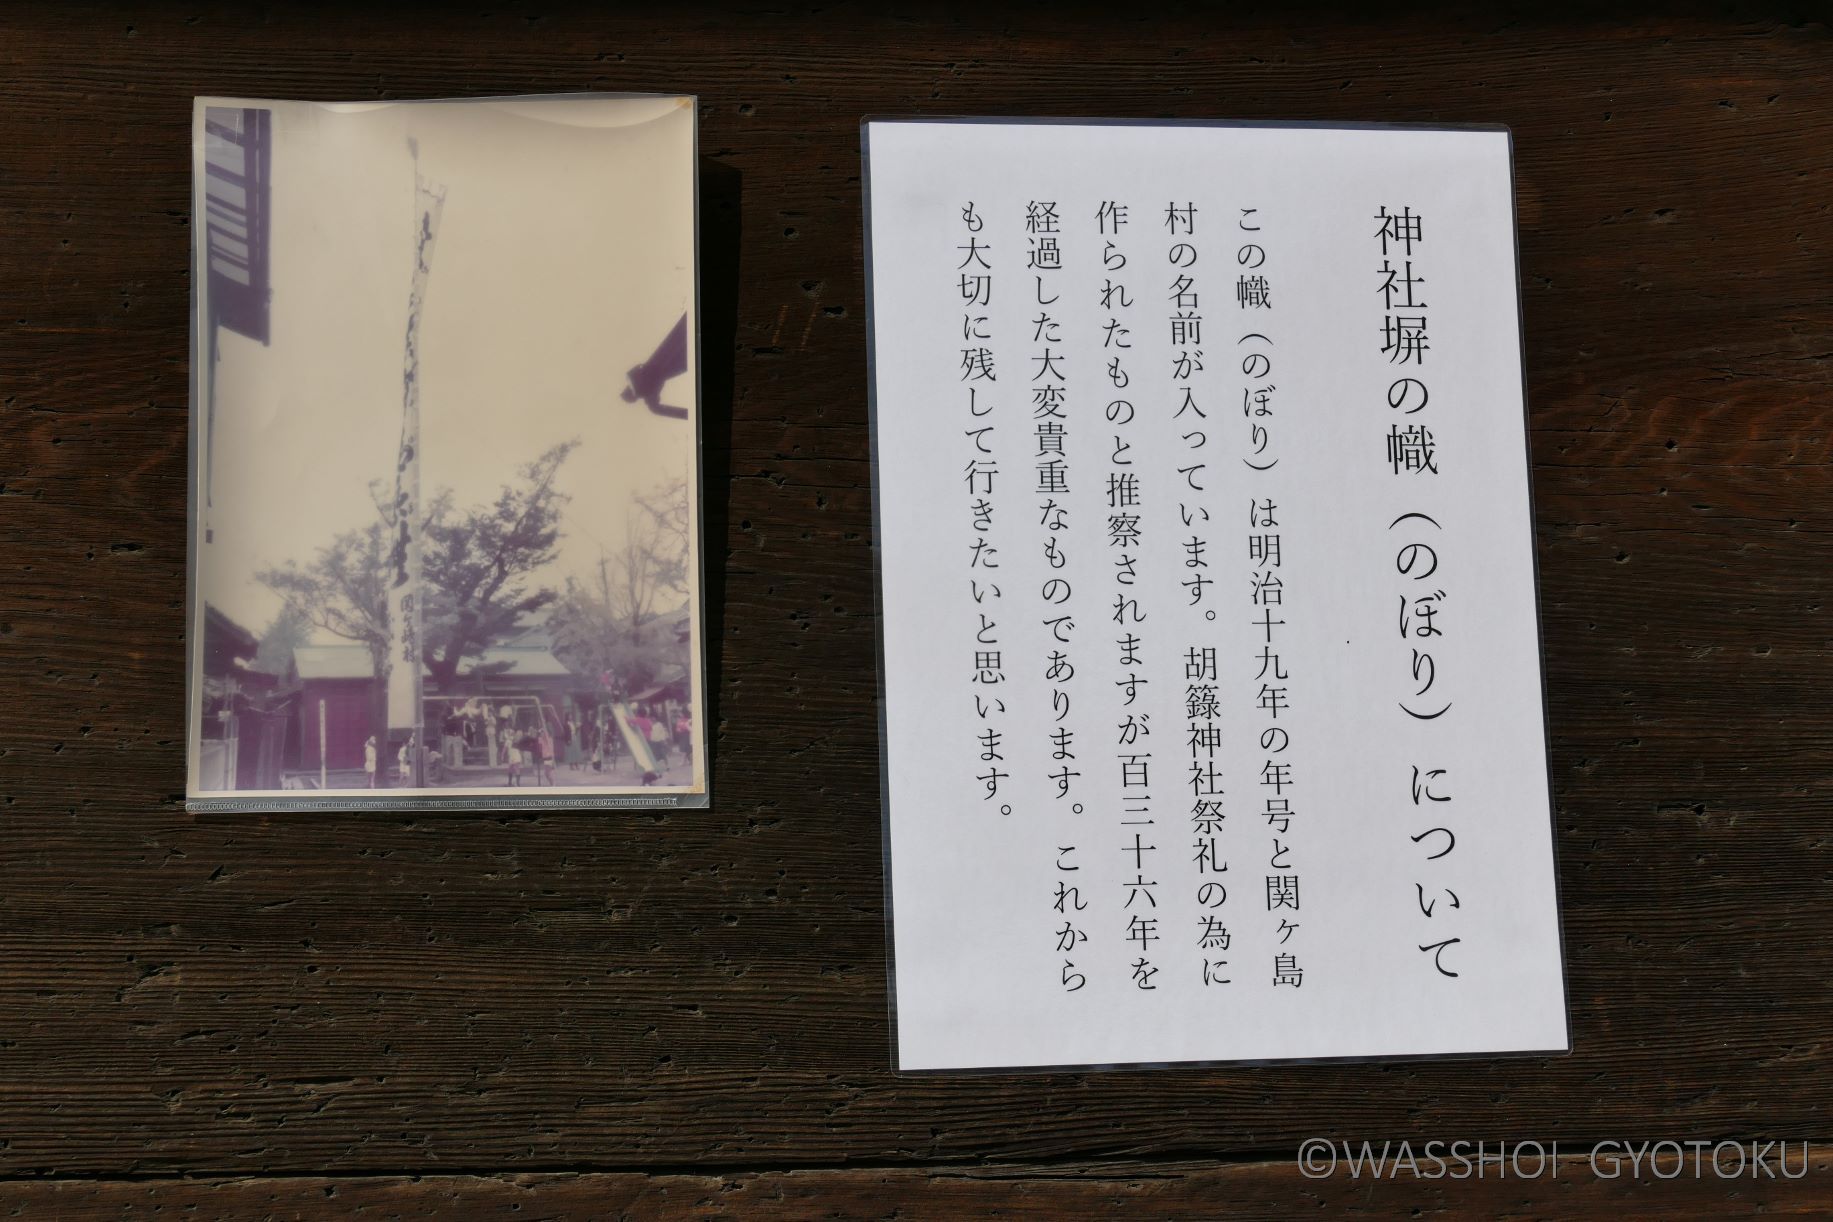 神社塀の幟（のぼり）について
この幟（のぼり）は明治十九年の年号と関ヶ島
村の名前が入っています。胡籙神社祭礼の為に
作られたものと推察されますが百三十六年を
経過した大変貴重なものであります。これから
も大切に残して行きたいと思います。
©WASSHOI GYOTOKU